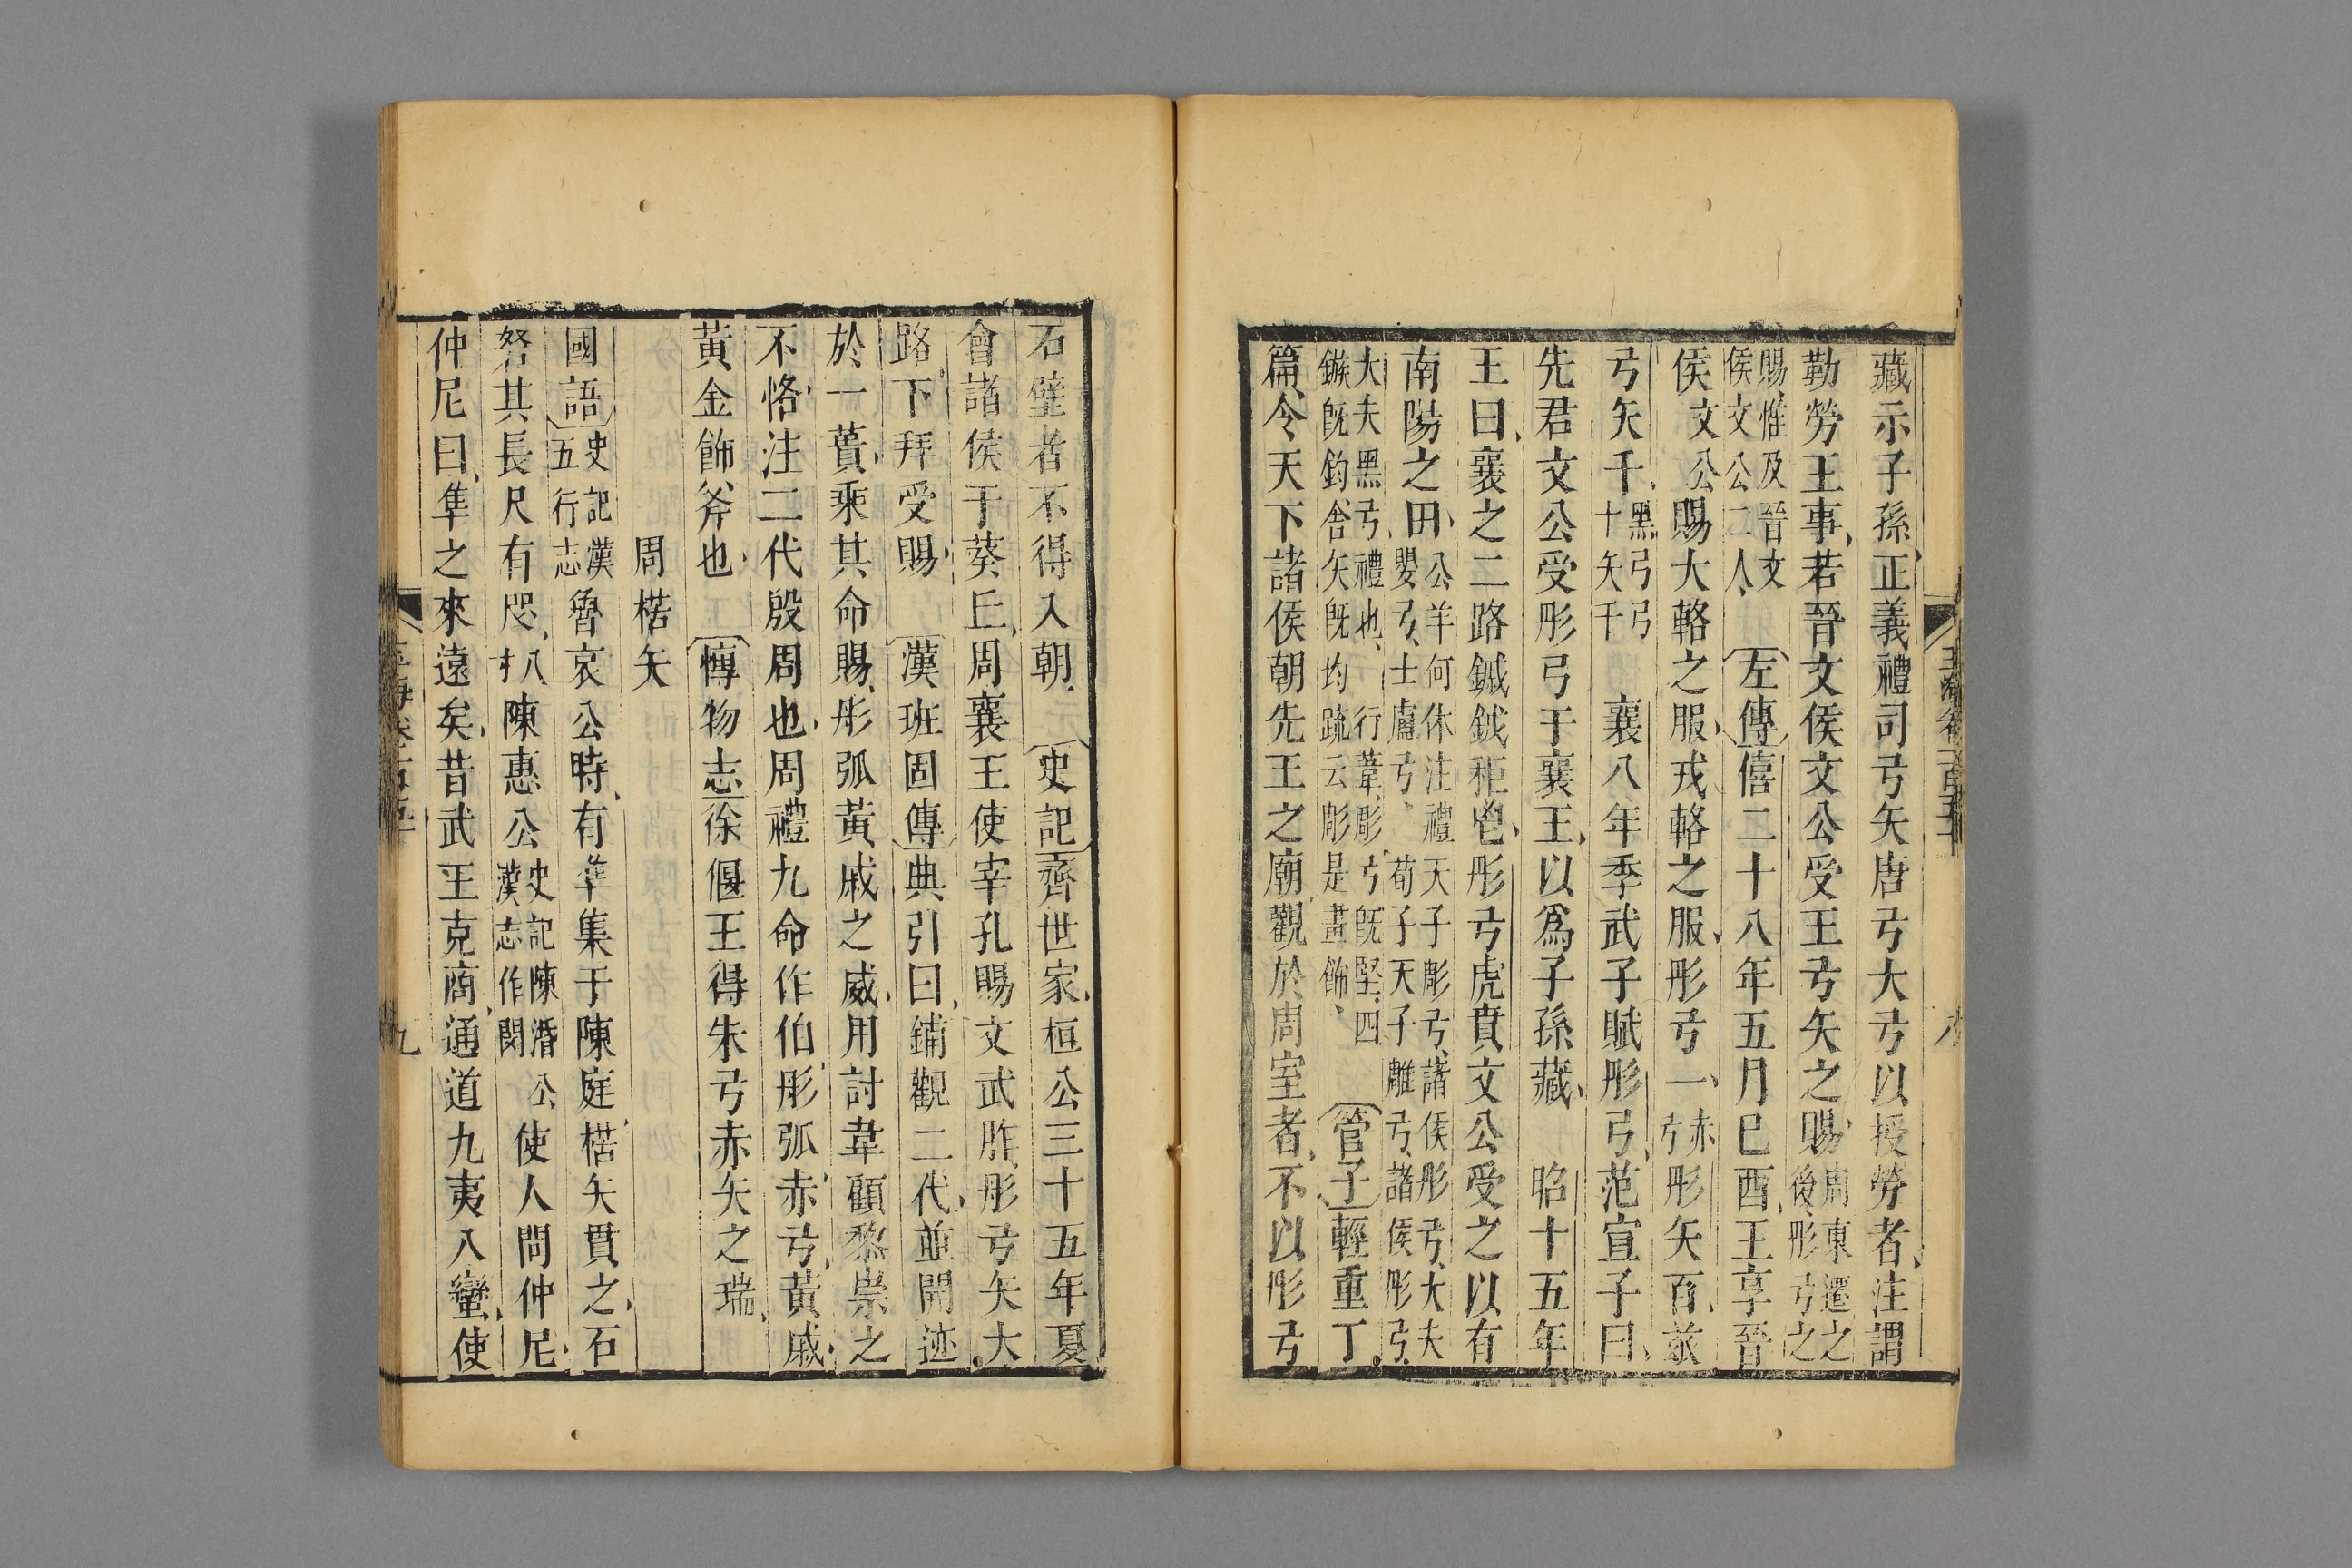 藏示子孫正義禮司弓矢唐弓大弓以授勞者注謂
勤勞王事若晉文侯文公受王弓矢之賜周東遷之後彤弓之
賜惟及晉文侯文公二人左傳僖二十八年五月已酉王享晉
侯文公賜大輅之服戎輅之服彤弓一赤弓彤矢百玈
弓矢千黑弓弓十矢千襄八年季武子賦彤弓范宣子曰
先君文公受彤弓于襄王以爲子孫藏昭十五年
王曰襄之二路鏚鉞秬鬯彤弓虎賁文公受之以有
南陽之田公羊何休注禮天子彫弓諸侯彤弓大夫嬰弓士盧弓荀子天子雕弓諸侯彤弓
大夫黑弓禮也行葦彫弓旣堅四鏃旣鈞舍矢旣均疏云彫是畫飾管子輕重丁
篇令天下諸侯朝先王之廟觀於周室者不以彤弓
石璧者不得入朝史記齊世家桓公三十五年夏
會諸侯于葵丘周襄王使宰孔賜文武胙彤弓矢大
路下拜受賜漢班固傳典引曰鋪觀二代並開迹
於一蕢乘其命賜彤弧黃戚之威用討韋顧黎崇之
不恪注二代殷周也周禮九命作伯彤弧赤弓黃戚
黃金飾斧也博物志徐偃王得朱弓赤矢之瑞
周楛矢
國語史記漢五行志魯哀公時有隼集于陳庭楛矢貫之石
砮其長尺有咫八寸陳惠公史記陳湣公漢志作閔使人問仲尼
仲尼曰隼之來遠矣昔武王克商通道九夷八蠻使
玉海卷一百五十
八
九